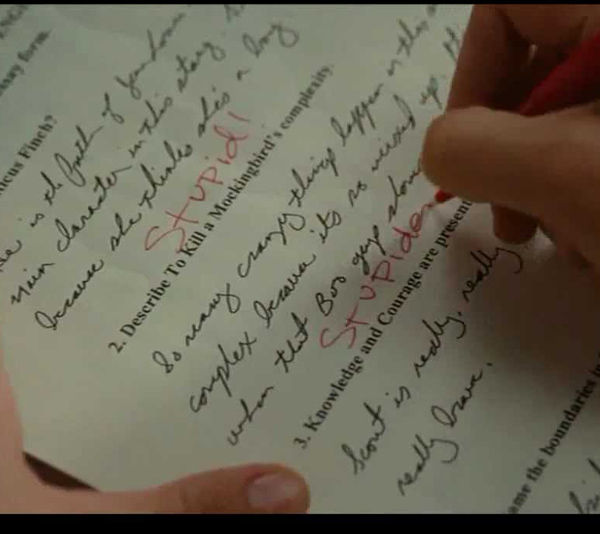 ticus Finch?
is th fath of
main character in this story.
because she thinks she's a boy
STUPID!
2. Describe To Kill a Mockingbird's complexity.
So many crazy things happen in this
complex because its so messed up.
when that Boo guy
STUPIDe
3. Knowledge and Courage are present
Scout is really, really
really brave.
ame the boundaries in